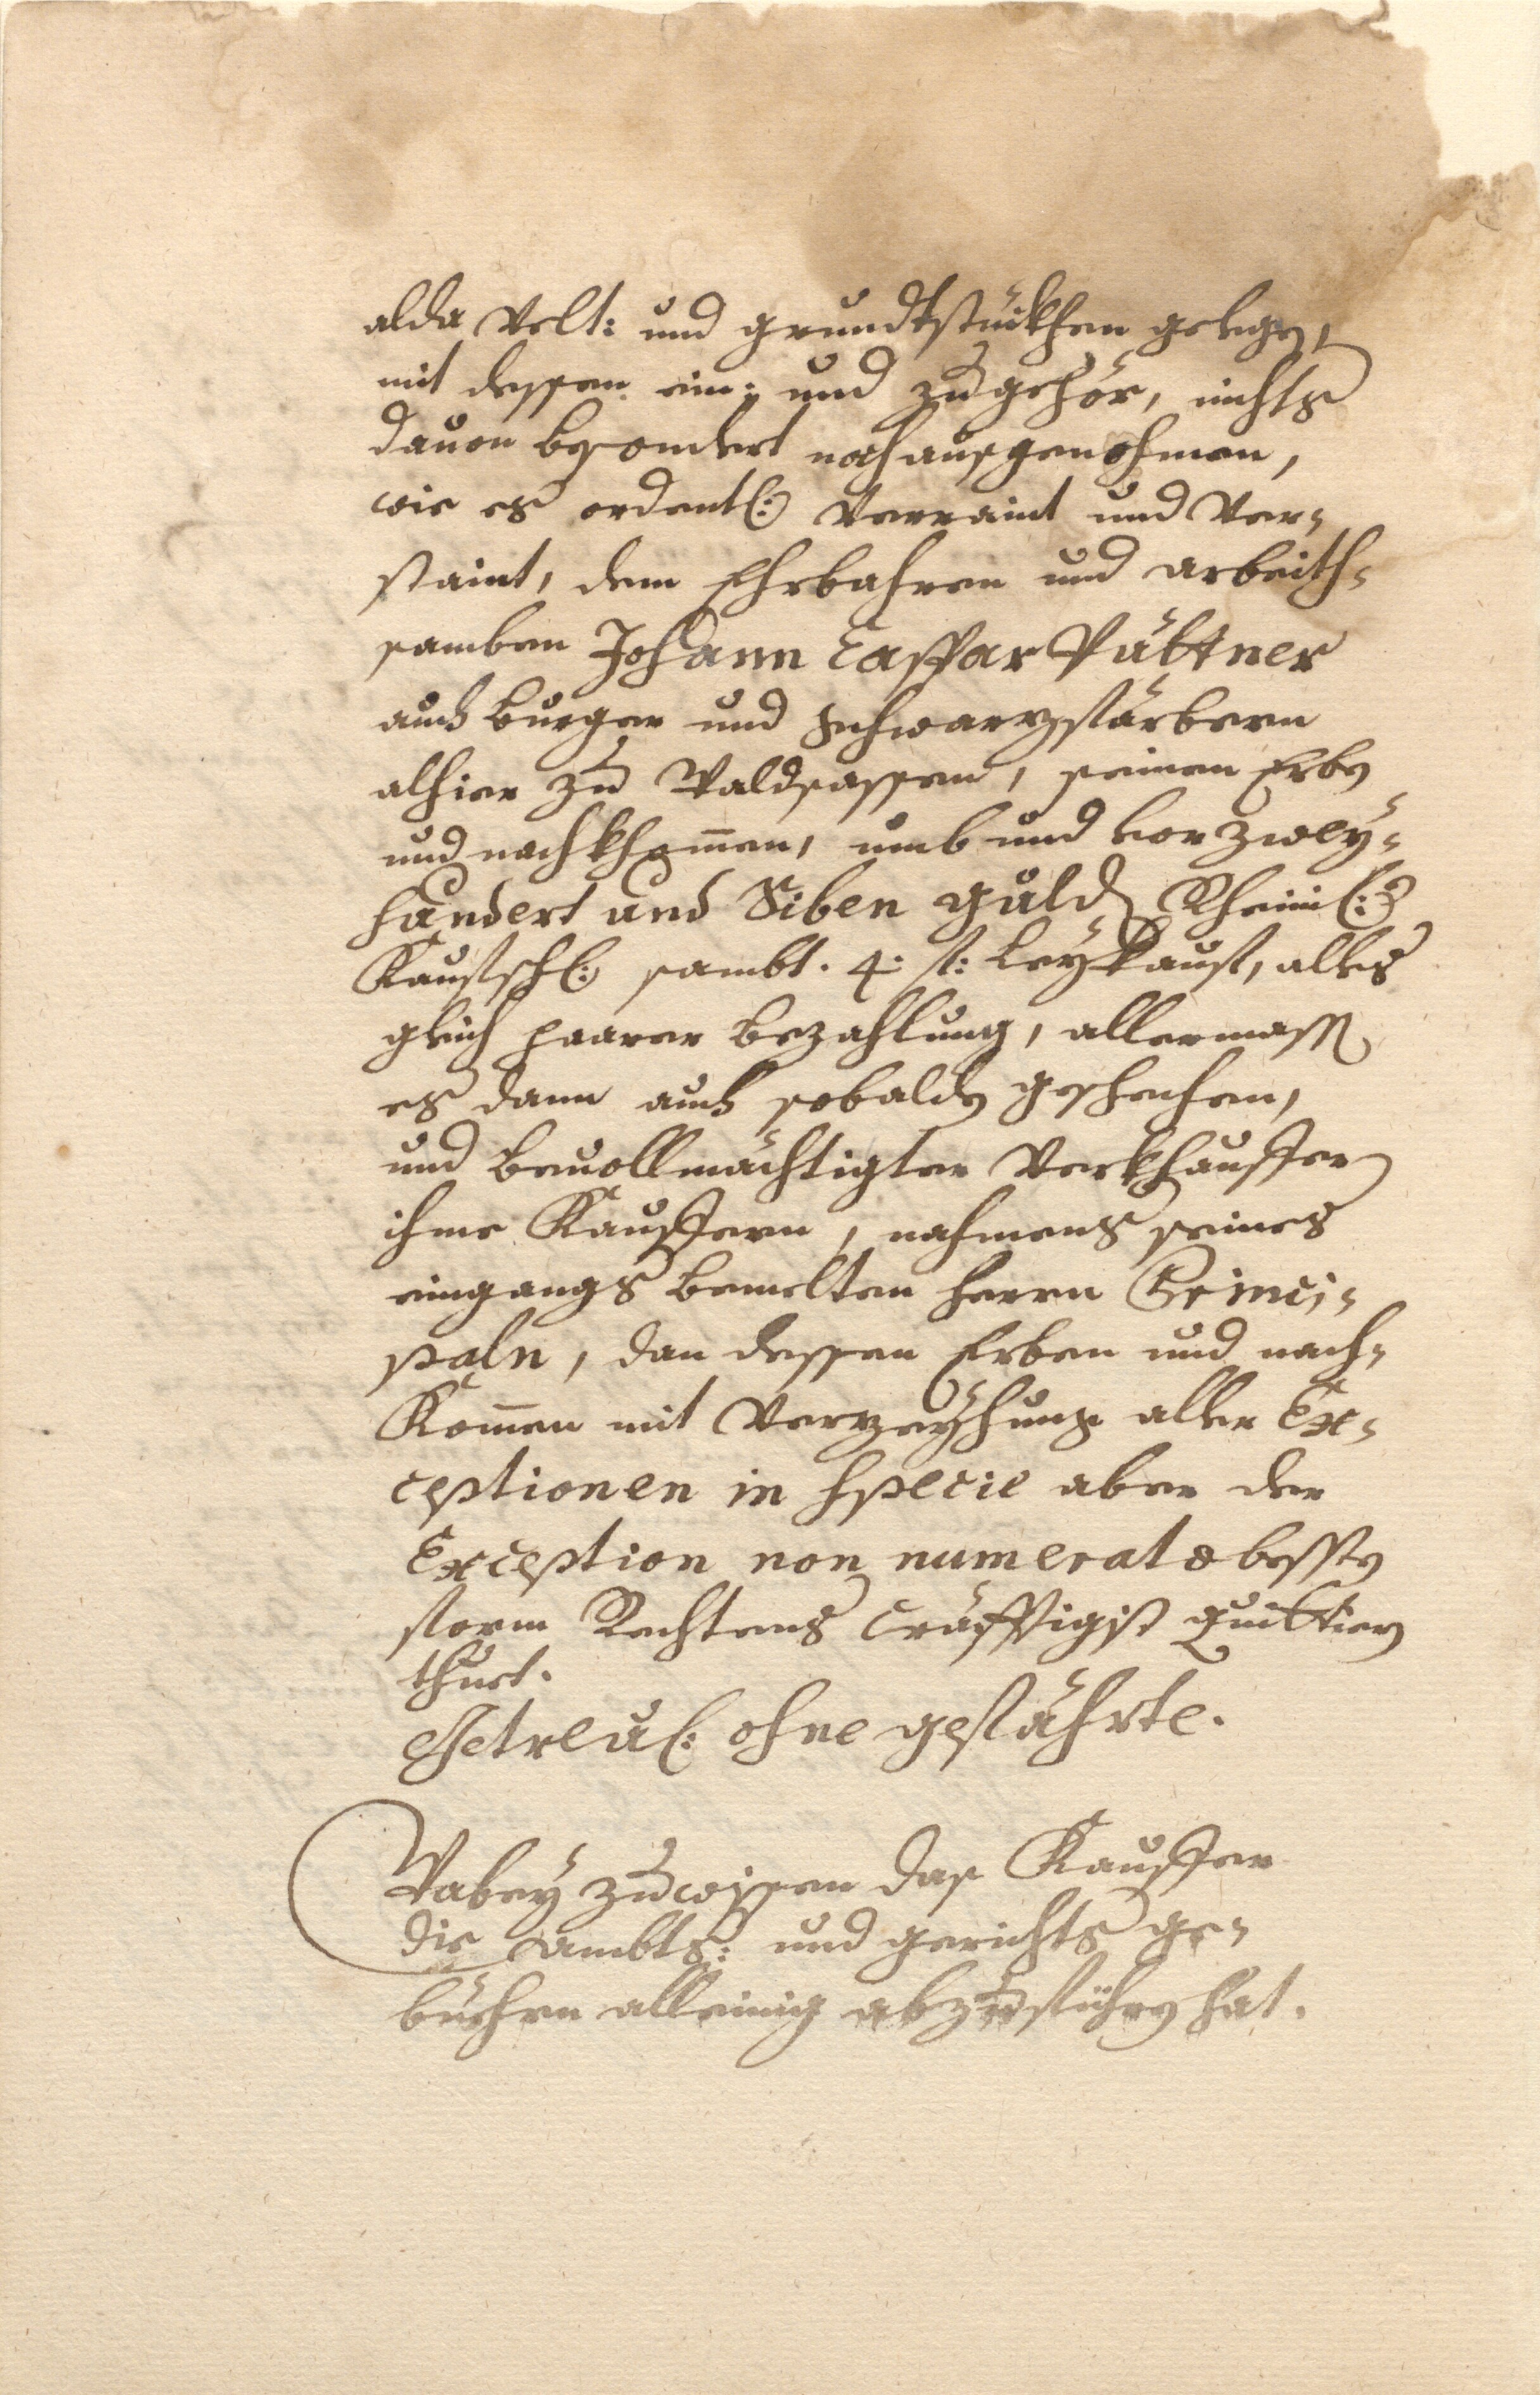 alda Velt: und grundtstückhen gelegen,
mit dessen ein: und zugehör, nichts
dauon besondert noch ausgenohmen,
wie es ordentl: Verraint und Ver-
staint, dem Ehrbahren und arbeith-
samben Johann Caspar
auch Burger und Schwarzfärbern
alhier zu Waldsassen, seinen Erben
und nachkhom̄en, umb und vor zwey-
hundert und Siben guld. Rheinl:
Kaufschl: sambt. 4. fl: Leykauf, alles
gleich paarer bezahlung, allermass.
es dann auch sobalden geschehen,
und beuollmächtigter Verkhauffer
ihme Kauffern, nahmens seines
eingangs bemelten herrn Princi-
paln, dan dessen Erben und nach-
kom̄en mit Verzeyhung aller Ex-
ceptionen in specie aber der
Exception non numeratæ besten
form Rechtens cräfftigist quittiern
thuet.
Getreul: ohne gefährte.
Dabey zuwissen das Kauffer
die ambts: und gerichts ge-
bühren alleinig abzuführen hat.